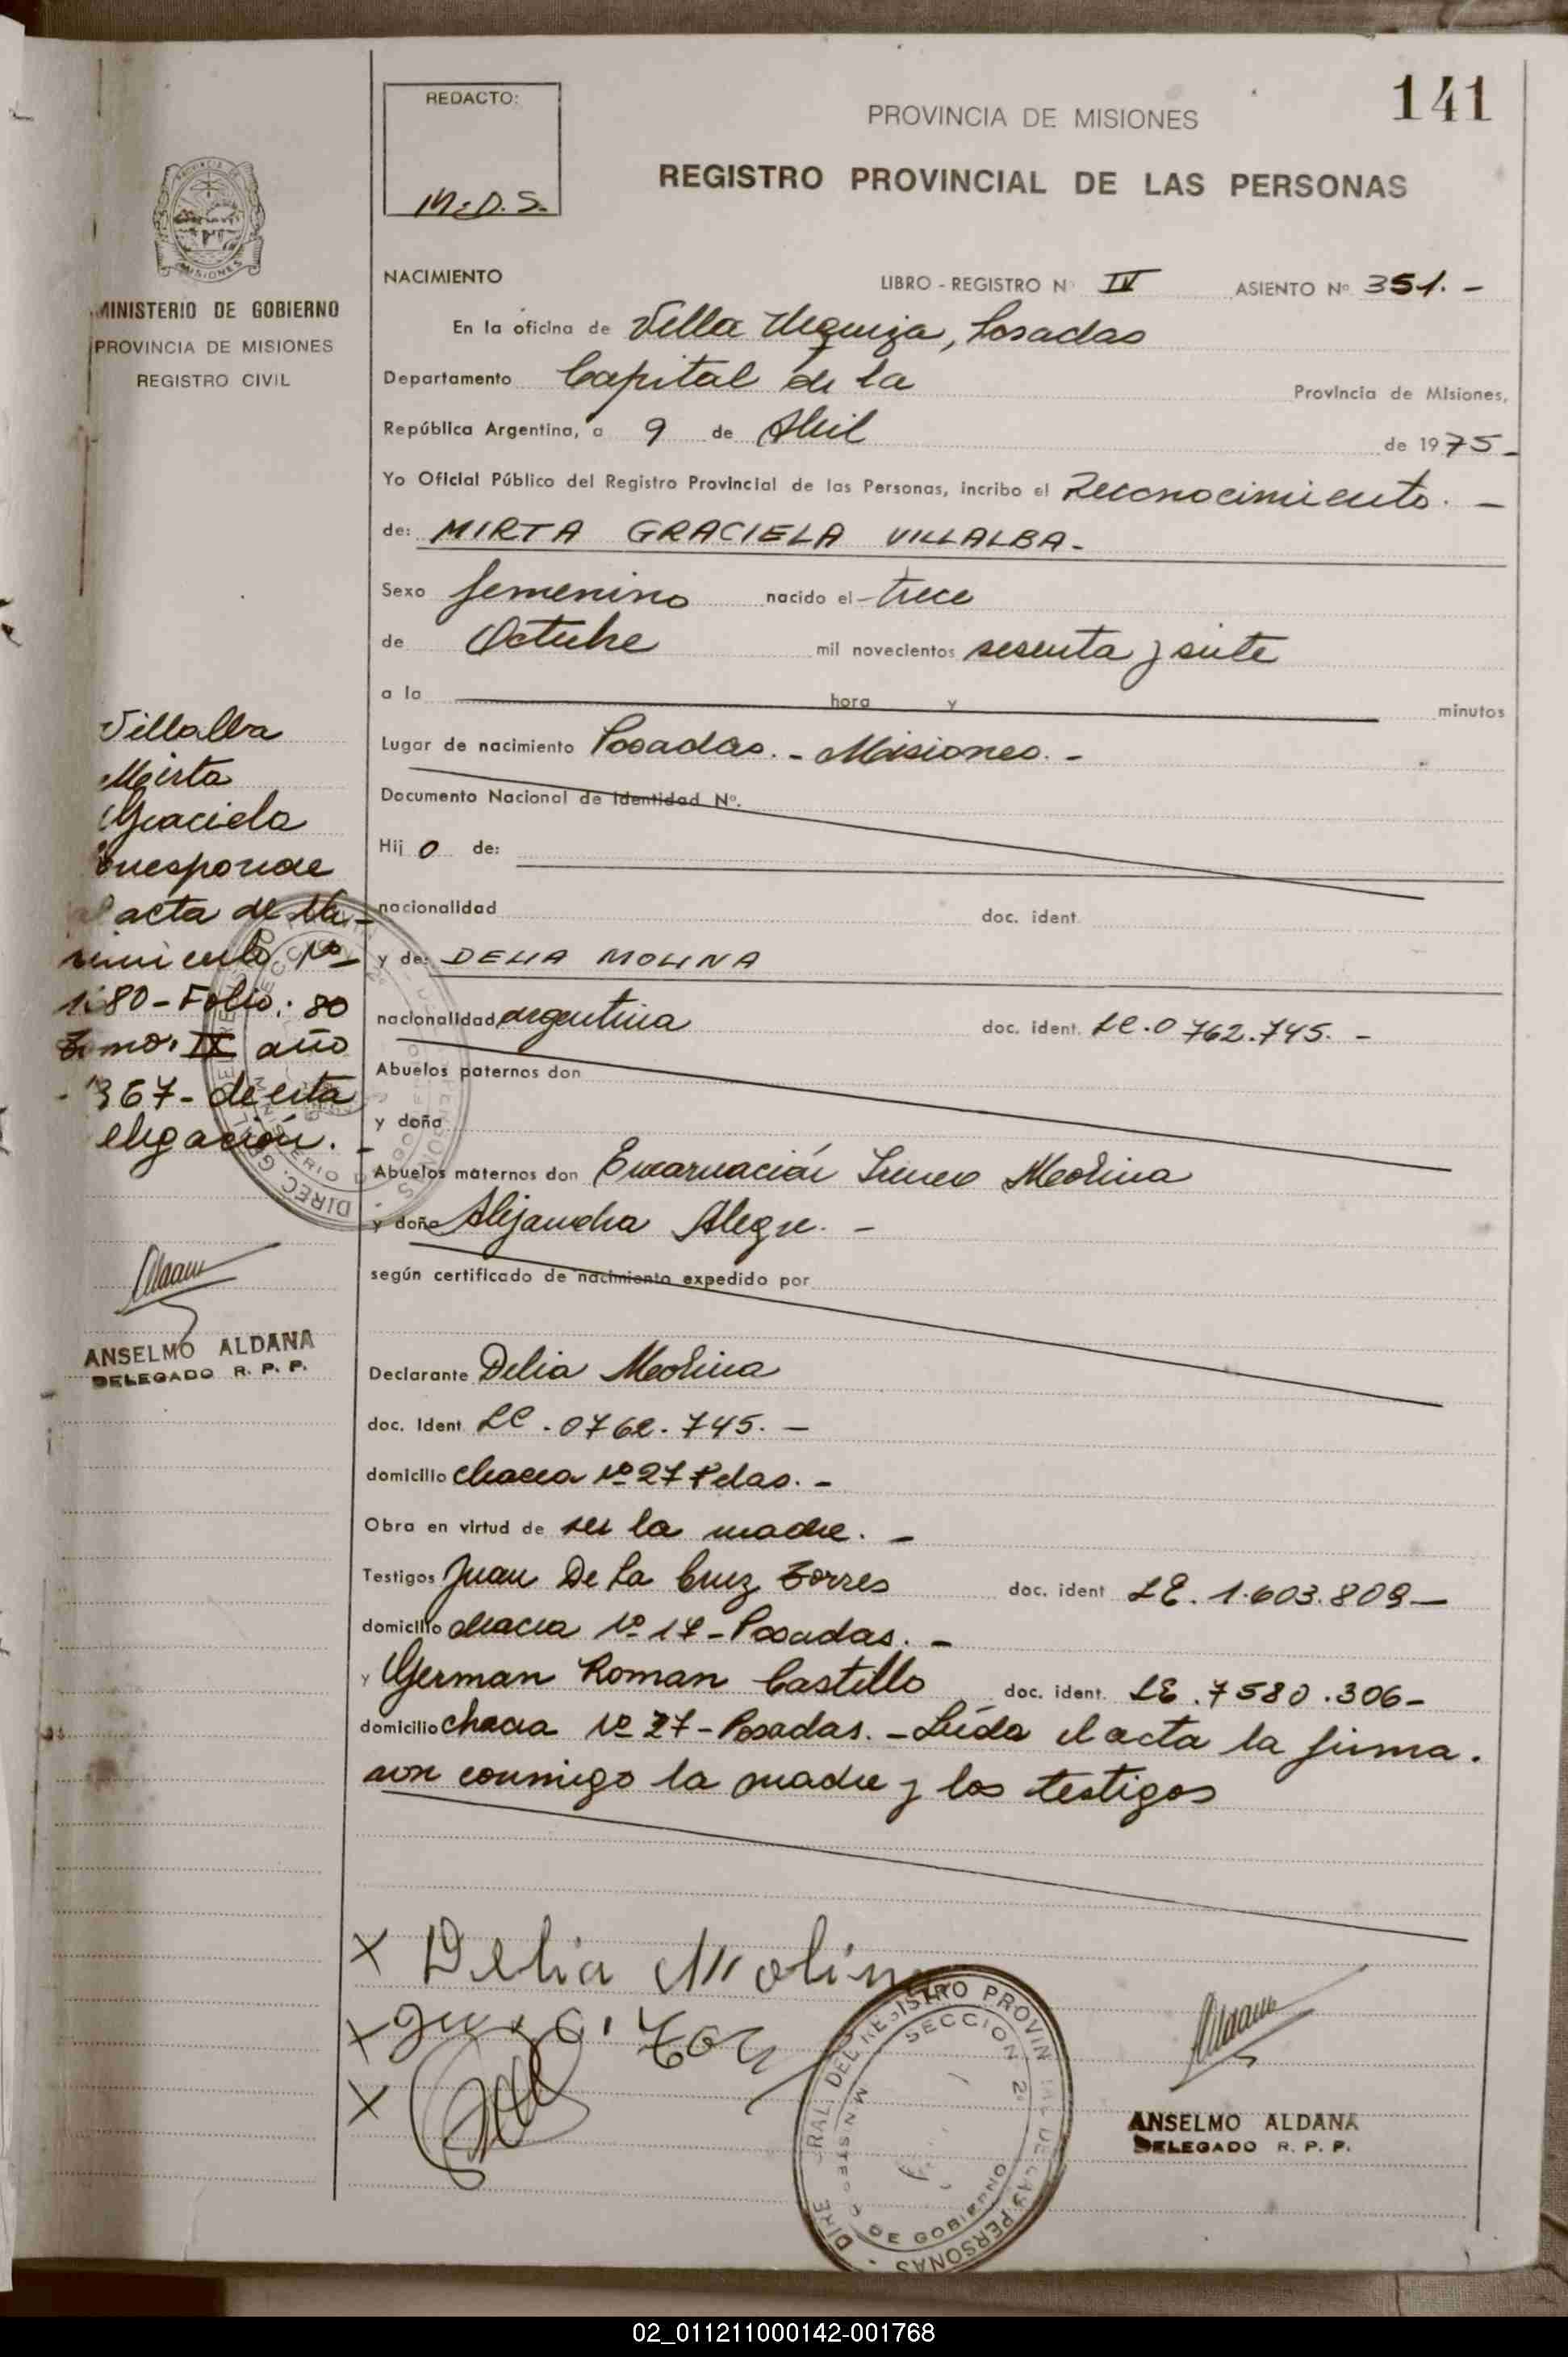 141
REDACTO:
M.D.S.
PROVINCIA DE MISIONES
REGISTRO PROVINCIAL DE LAS PERSONAS
MINISTERIO DE GOBIERNO
PROVINCIA DE MISIONES
REGISTRO CIVIL
NACIMIENTO LIBRO - REGISTRO Nº IV ASIENTO Nº 351.-
En la oficina de Villa Urquiza, Posadas
Departamento Capital de la Provincia de Misiones,
República Argentina, a 9 de Abril de 1975-
Yo Oficial Público del Registro Provincial de las Personas, incribo el Reconocimiento.-
de: MIRTA GRACIELA VILLALBA-
Sexo femenino nacido el trece
de Octubre mil novecientos sesenta y siete
a la hora y minutos
Lugar de nacimiento Posadas.- Misiones.-
Documento Nacional de Identidad Nº.
Hij o de:
nacionalidad doc. ident.
y de: DELIA MOLINA
nacionalidad argentina doc. ident. LC.0762.745.-
Abuelos paternos don
y doña
Abuelos maternos don Encarnación Irineo Molina
y doña Alejandra Alegre.-
según certificado de nacimiento expedido por
Declarante Delia Molina
doc. Ident. LC.0762.745.-
domicilio chacra Nº 27 Pdas.-
Obra en virtud de ser la madre.-
Testigos Juan De La Cruz Torres doc. ident LE. 1.603.809-
domicilio chacra Nº 17-Posadas.-
y German Roman Castillo doc. ident. LE.7580.306-
domicilio chacra Nº 27-Posadas.-Leída el acta la firma.
ron conmigo la madre y los testigos
Villalba
Mirta
Graciela
acta de Na-
cimiento Nº
80-Folio: 80
Tomo: II año
67-de esta
elegación.
ANSELMO ALDANA
DELEGADO R. P. P.
X Delia Molina
X
X
REGISTRO PROVIN
SECCION 2
DE GOBIERNO
PERSONAS
ANSELMO ALDANA
DELEGADO R. P. P.
02_011211000142-001768